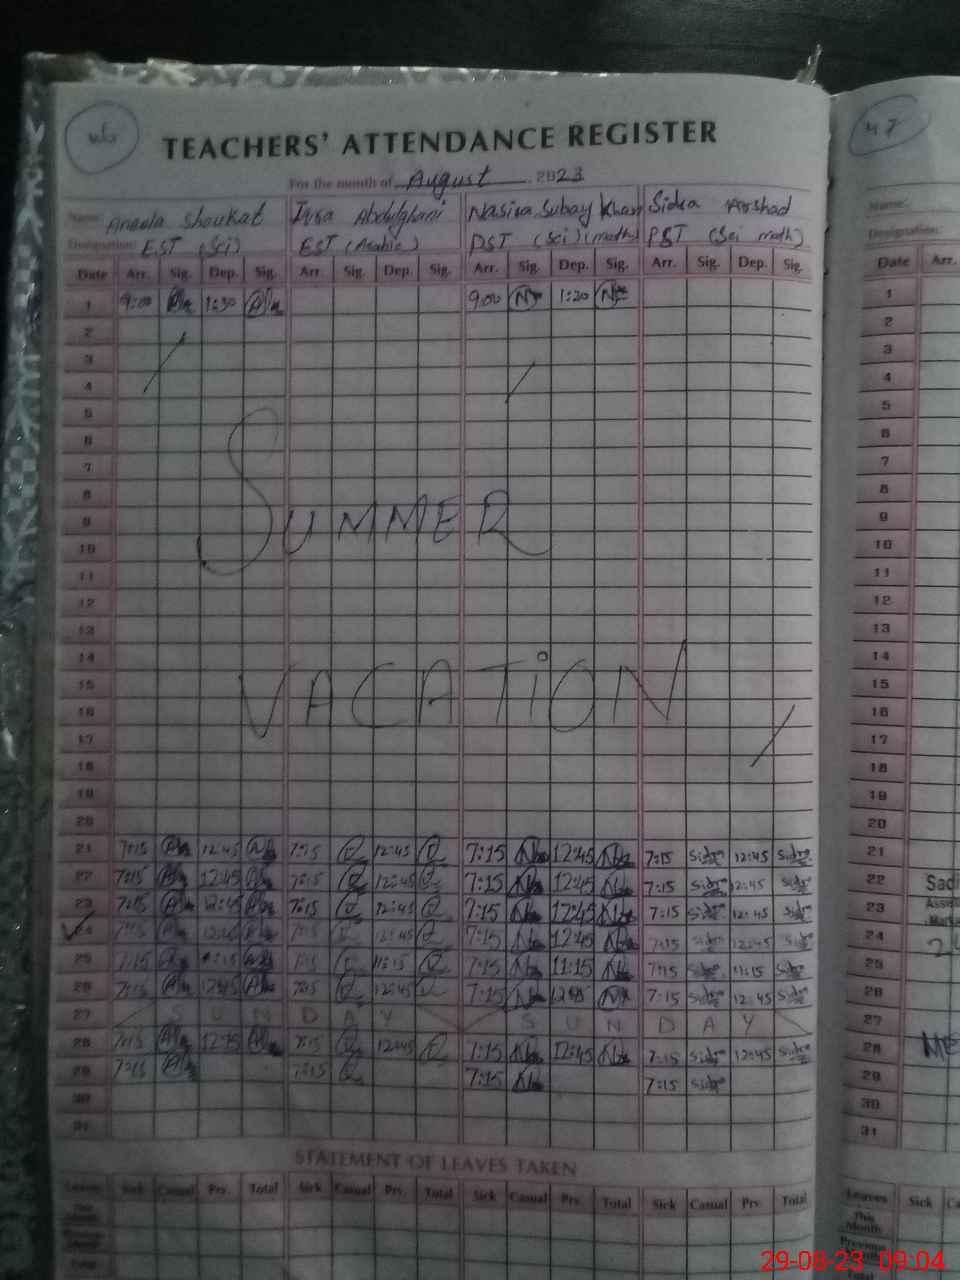 46
47
TEACHERS' ATTENDANCE REGISTER
For the month of August 2023
Name: Aneela Shoukat Abdulghani Nasira Khan Sidra Arshad
Name:
Designation: EST (Sci) EST (Arabic) PST (Sci)(math) PST (Sci math)
Designation:
Date Arr. Sig. Dep. Sig. Arr. Sig. Dep. Sig. Arr. Sig. Dep. Sig. Arr. Sig. Dep. Sig.
Date Arr.
1 9:00 1:30 9:00 1:20
1
2
2
3
3
4
4
5
5
6
6
7
7
8
8
9
9
SUMMER
10
10
11
11
12
12
13
13
14
14
15
15
VACATION
16
16
17
17
18
18
19
19
20
20
21 7:15 12:45 7:15 12:45 7:15 12:45 7:15 Sidra 12:45 Sidra
21
22 7:15 12:45 7:15 12:45 7:15 12:45 7:15 Sidra 12:45 Sidra
22
23 7:15 12:45 7:15 12:45 7:15 12:45 7:15 Sidra 12:45 Sidra
23
24 7:15 12:45 7:15 12:45 7:15 12:45 7:15 Sidra 12:45 Sidra
24
25 7:15 11:15 7:15 11:15 7:15 11:15 7:15 Sidra 11:15 Sidra
25
26 7:15 12:45 7:15 12:45 7:15 12:45 7:15 Sidra 12:45 Sidra
26
27 SUNDAY SUNDAY
27
28 7:15 12:45 7:15 12:45 7:15 12:45 7:15 Sidra 12:45 Sidra
28
29 7:15 7:15 7:15 7:15 Sidra
29
30
30
31
31
STATEMENT OF LEAVES TAKEN
Leaves Sick Casual Prv. Total Sick Casual Prv. Total Sick Casual Prv. Total Sick Casual Prv. Total
Leaves Sick
This Month
This Month
Previous
Previous
Total
Total
29-08-23 09:04